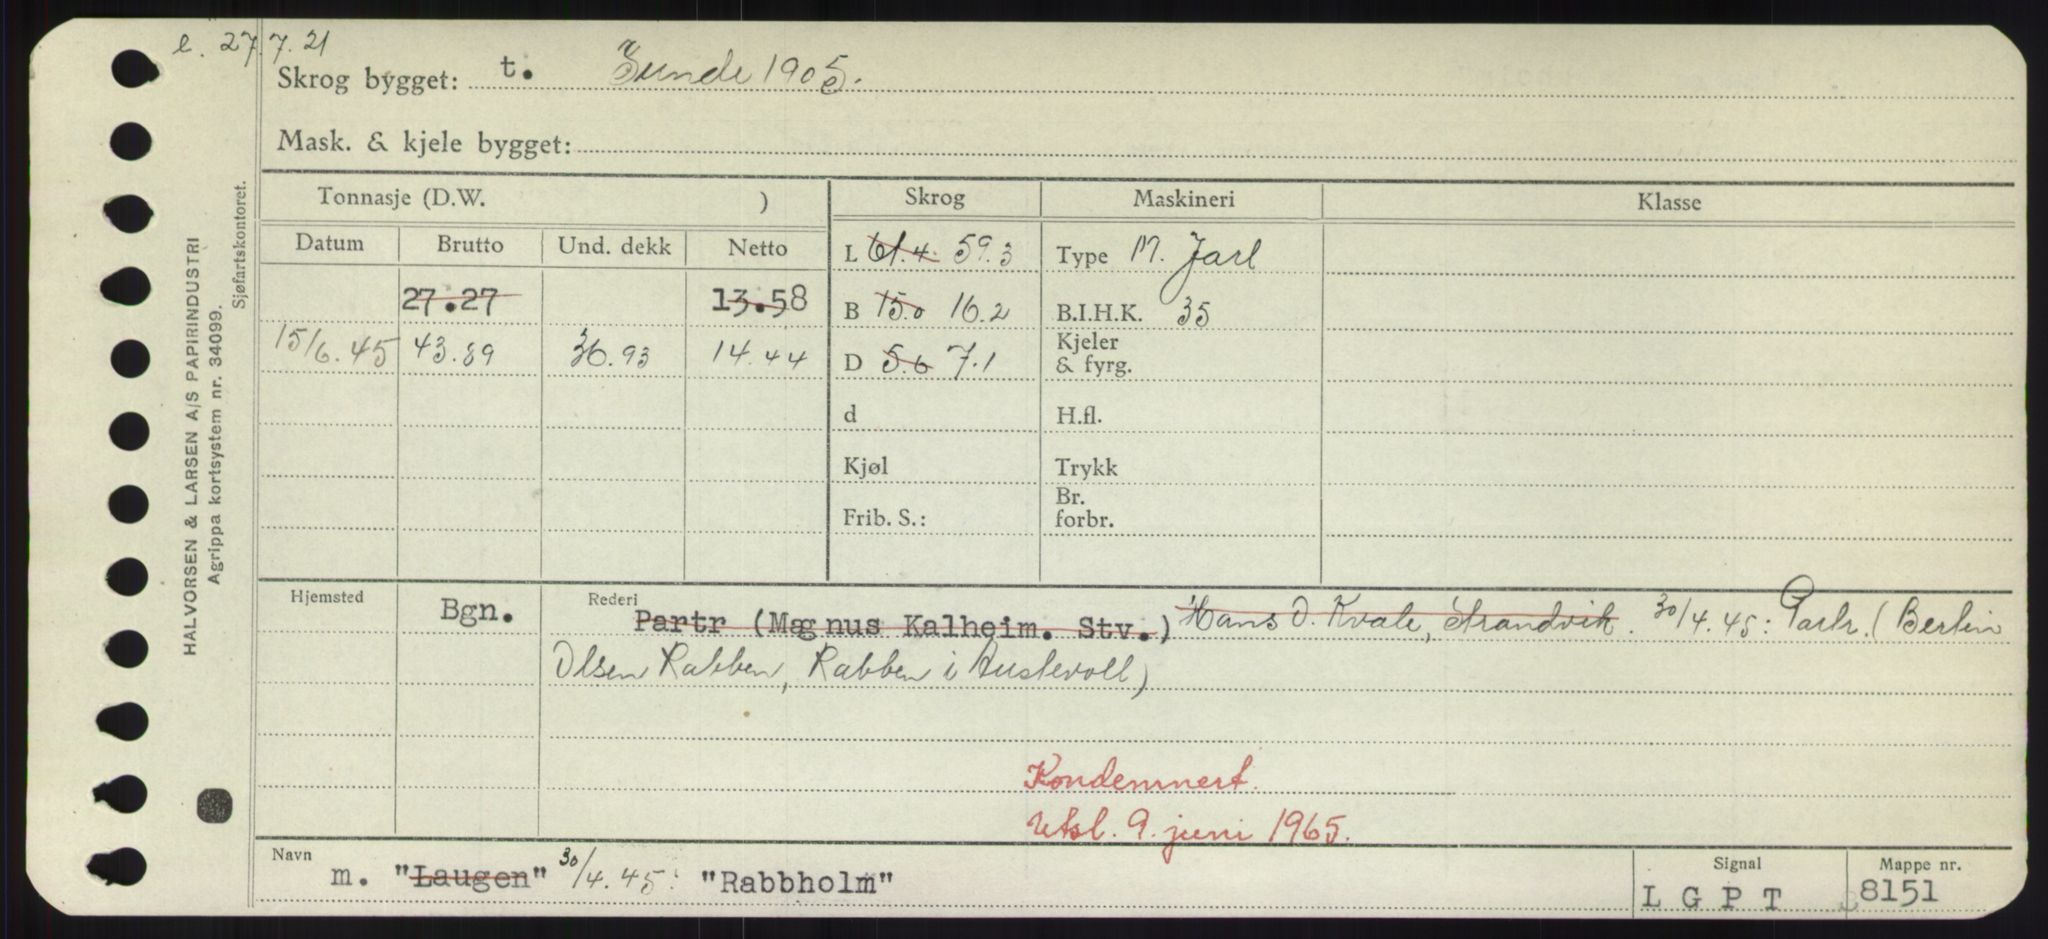 e. 27.7.21
Skrog bygget: t. Sunde 1905.
Mask. & kjele bygget:
Tonnasje (D.W. ) Skrog Maskineri Klasse
Datum Brutto Und. dekk Netto L 61.4. 59.3 Type M. Jarl
27.27 13.58 B 15.0 16.2 B.I.H.K. 35
15/6.45 43.89 36.93 14.44 D 5.6 7.1 Kjeler & fyrg.
d H.fl.
Kjøl Trykk
Frib. S.: Br. forbr.
Hjemsted Bgn. Rederi Partr (Magnus Kalheim. Stv.) Hans D. Kvale, Strandvik. 30/4.45: Partr. (Bertin
Olsen Rabben, Rabben i Austevoll)
Kondemnert.
Utsl. 9. juni 1965.
Navn m. "Laugen" 30/4.45: "Rabbholm" Signal LGPT Mappe nr. 8151
HALVORSEN & LARSEN A/S PAPIRINDUSTRI
Agrippa kortsystem nr. 34099.
Sjøfartskontoret.